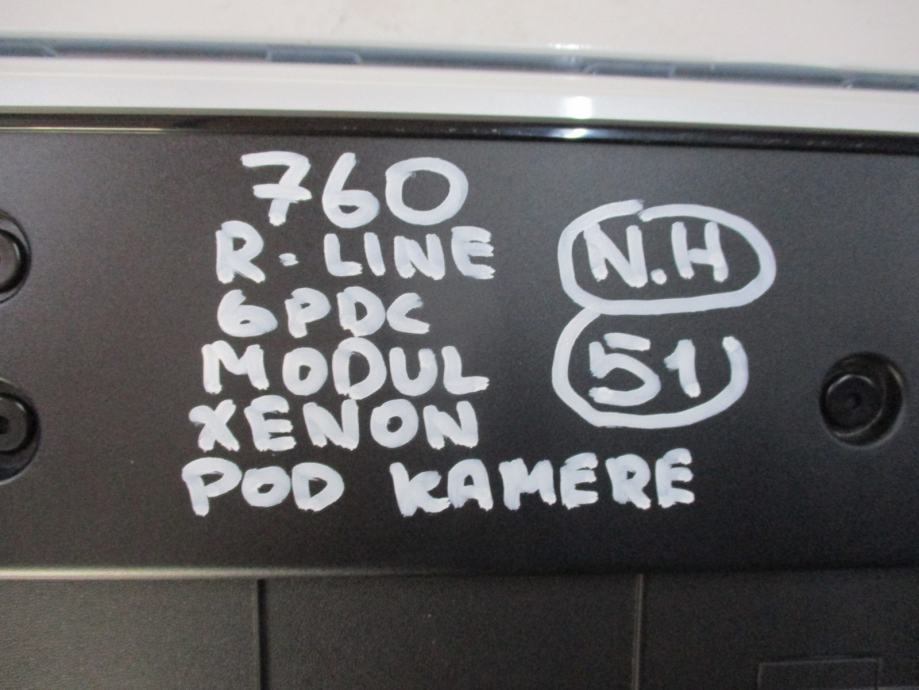 760
R-LINE
6PDC
MODUL
XENON
POD KAMERE
N.H
51